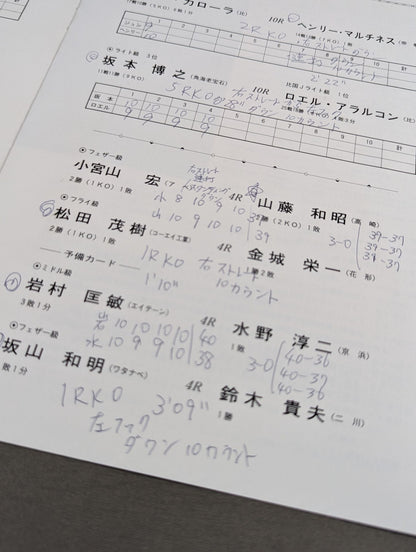 カローラ(比) 10R ヘンリー・マルチネス
2RKO
1 2 3 4 5 6 7 8 9 10 計
右ストレート
ダウン
2'22"
ライト級 3位
比国Jライト級 1位
坂本 博之(角海老宝石) 10R ロエル・アラルコン
11戦11勝(9KO)
5RKO
右ストレート
ダウン 10カウント
1 2 3 4 5 6 7 8 9 10 計
坂本 10 10 10 10
ロエル 9 9 9 9
フェザー級
小宮山 宏 4R 山藤 和昭(高崎)
2勝(1KO)1敗
2勝(2KO)1敗
右ストレート
ダウン
小 8 10 9 10
山 10 9 10 10 39
3-0
39-37
39-37
フライ級
松田 茂樹(ユーエイ工業) 4R 金城 栄一(花形)
2勝(1KO)1敗
勝2敗
1RKO 右ストレート
1'10" 10カウント
予備カード
ミドル級
岩村 匡敏(エイテーン) 4R 水野 淳二(京浜)
3敗1分
1敗
岩 10 10 10 10 40
水 10 9 9 10 38
3-0
40-36
40-37
40-36
フェザー級
坂山 和明(ワタナベ) 4R 鈴木 貴夫(二川)
敗1分
1勝
1RKO 3'09"
左フック
ダウン 10カウント